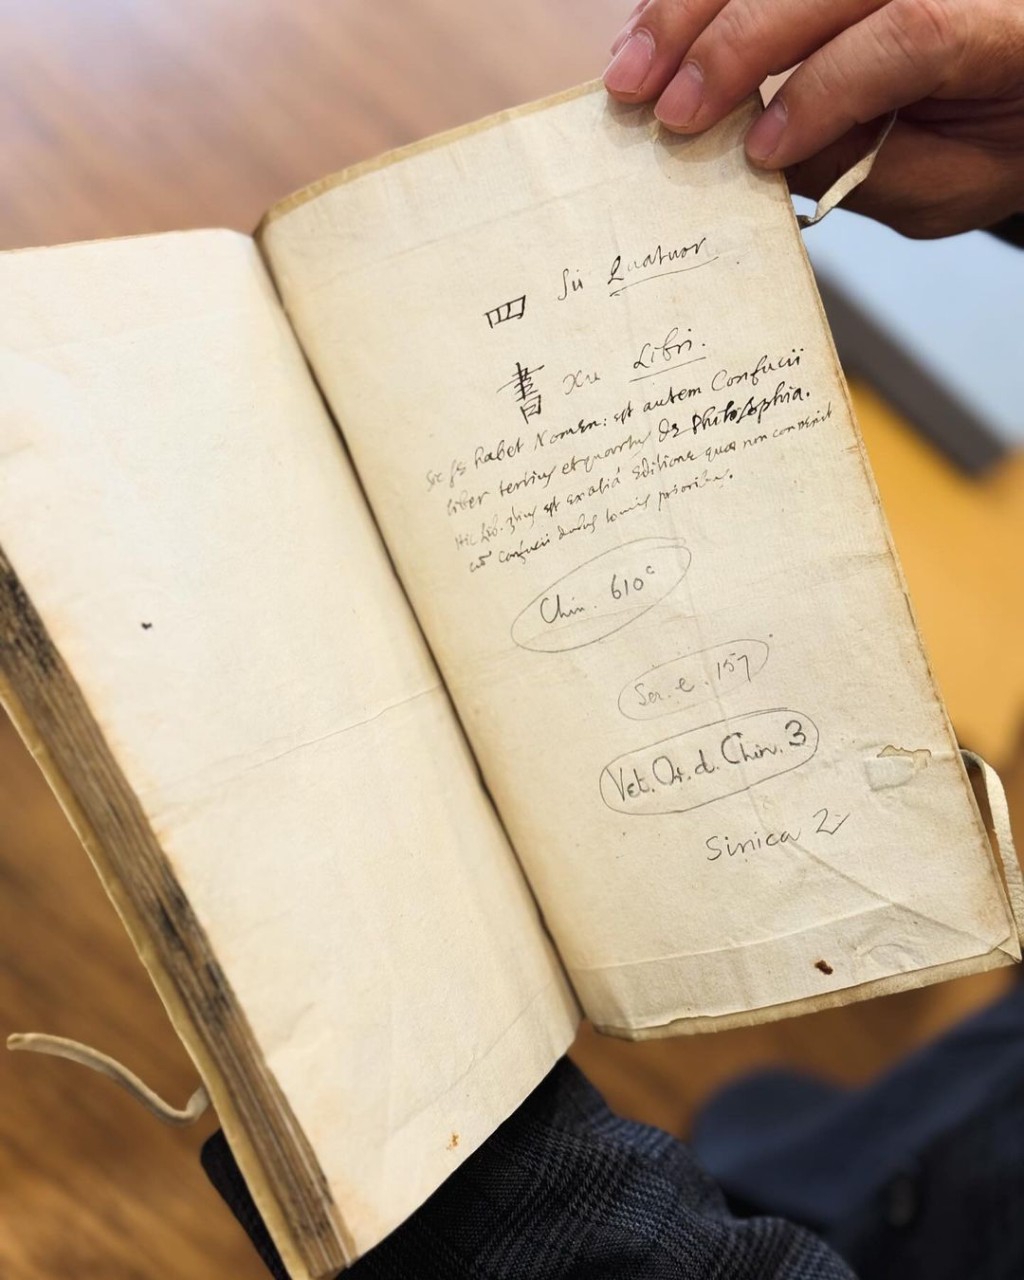 四 Su Quatuor
書 Xu Libri.
habet Nomen: est autem Confucii
liber tertius et quartus de Philosophia.
Hic Lib. 3ius est ex aliâ Editione quae non convenit
cū Confucii duobus tomis prioribus.
Chin. 610c
Ser. e. 157
Vet. Or. d. Chin. 3
Sinica 2